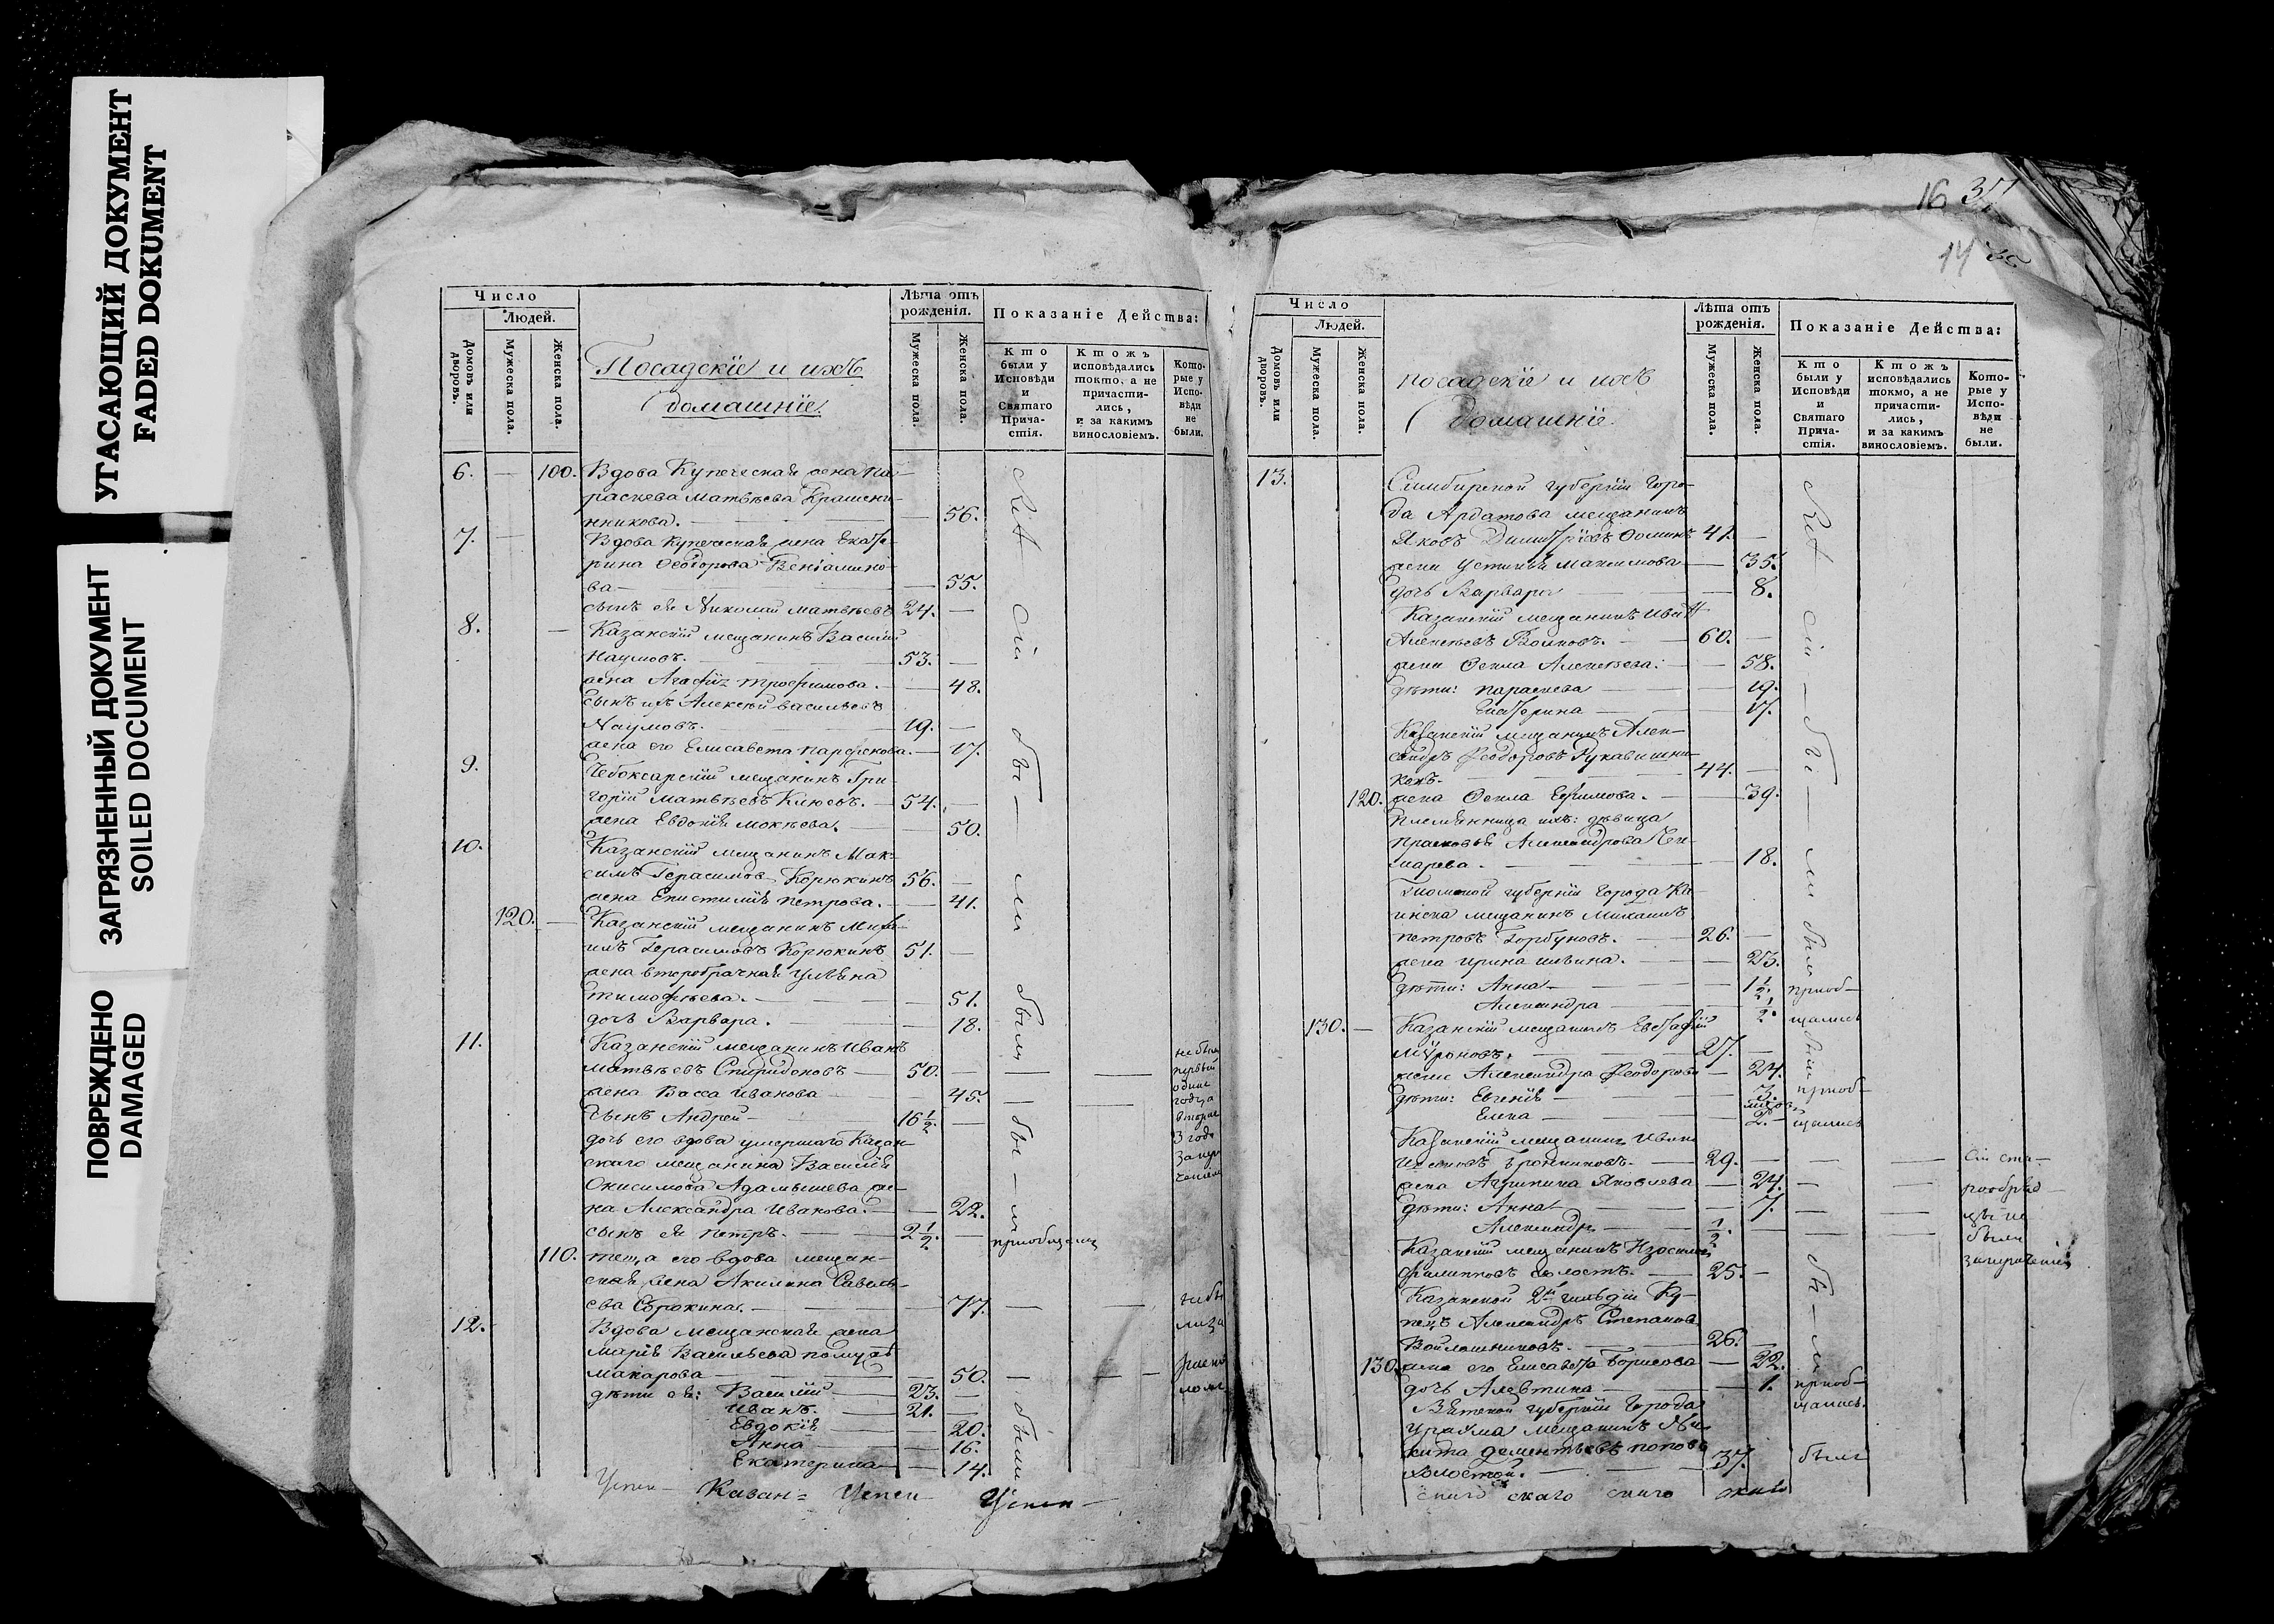 УГАСАЮЩИЙ ДОКУМЕНТ
FADED DOKUMENT
ЗАГРЯЗНЕННЫЙ ДОКУМЕНТ
SOILED DOCUMENT
ПОВРЕЖДЕНО
DAMAGED
Число
Людей.
Домовъ или дворовъ.
Мужеска пола.
Женска пола.
Посадскіе и ихъ
домашніе.
Лѣта отъ
рожденія.
Мужеска пола.
Женска пола.
Показаніе Действа:
Кто
были у
Исповѣди
и
Святаго
Прича-
стія.
Ктожъ
исповѣдались
токмо, а не
причасти-
лись,
и за какимъ
винословіемъ.
Кото-
рые у
Испо-
вѣди
не
были.
6. — 100. Вдова Купеческая жена Па-
раскева Матвѣева Крашени-
нникова. — 56.
7. — Вдова Купеческая жена Екате-
рина Ѳеодорова Веніамино-
ва — 55.
сынъ ея Николай Матвѣевъ 24. —
8. — Казанскій мещанинъ Василій
Наумовъ. — 53. —
жена Агафія Трофимова. — 48.
сынъ ихъ Алексѣй Васильевъ
Наумовъ. — 19. —
жена его Елисавета Парфенова. — 17.
9. Чебоксарскій мещанинъ Гри-
горій Матвѣевъ Клюевъ. — 54. —
жена Евдокія Мокѣева. — 50.
10. Казанскій мещанинъ Мак-
симъ Герасимовъ Корюкинъ 56. —
жена Епистимія Петрова. — 41.
120. — Казанскій мещанинъ Миха-
илъ Герасимовъ Корюкинъ 51. —
жена второбрачная Ульяна
Тимофѣева. — 51.
дочь Варвара. — 18.
11. Казанскій мещанинъ Иванъ
Матвѣевъ Спиридоновъ — 50. —
жена Васса Иванова — 45.
сынъ Андрей — 16 1/2. —
дочь его вдова умершаго Казан-
скаго мещанина Василія
Онисимова Адамышева же-
на Александра Иванова. — 22.
сынъ ея Петръ. — 2 1/2. — приобщались
110. теща его вдова мещан-
ская жена Акилина Савель-
ева — 77.
12. Вдова мещанская жена
Марія Васильева
Макарова — 50. —
дѣти ея: Василій — 23. —
Иванъ. — 21. —
Евдокія — 20.
Анна — 16.
Екатерина — 14.
Успен- Казан= Успен- Успен-
16 37
14
Число
Людей.
Домовъ или дворовъ.
Мужеска пола.
Женска пола.
посадскіе и ихъ
домашніе.
Лѣта отъ
рожденія.
Мужеска пола.
Женска пола.
Показаніе Действа:
Кто
были у
Исповѣди
и
Святаго
Прича-
стія.
Ктожъ
исповѣдались
токмо, а не
причасти-
лись,
и за какимъ
винословіемъ.
Кото-
рые у
Испо-
вѣди
не
были.
13. Симбирской губерніи горо-
да Ардатова мещанинъ
Яковъ Димитріевъ 41. —
жена Устинія Максимова — 35.
дочь Варвара — 8.
Казанскій мещанинъ Иванъ
Алексѣевъ Волковъ. — 60. —
жена Ѳекла Алексѣева. — 58.
дѣти: Параскева — 19.
Екатерина — 17.
Казанскій мещанинъ Алек-
сандръ Ѳеодоровъ Рукавишни-
ковъ. — 44. —
120. жена Ѳекла Ефимова. — 39.
Племянница ихъ: дѣвица
Прасковья Александрова
— 18.
губерніи города Ка-
инска мещанинъ Михаилъ
Петровъ Горбуновъ. — 26. —
жена Ирина Ильина. — 23.
дѣти: Анна — 1 1/2. приоб-
Александра — 1/2. щались
130. — Казанскій мещанинъ Евстафій
Мѵроновъ. — 27. —
жена Александра Ѳеодорова — 24.
дѣти: Евгенія — 3. приоб-
Елена — 2. щались
Казанскій мещанинъ Иванъ
— 29. —
жена Агрипина Яковлева — 24.
дѣти: Анна — 7.
Александръ — 1/2. —
Казанскій мещанинъ
Филипповъ холостъ. — 25. —
Казанской 2й гильдіи Ку-
пецъ Александръ Степановъ
Войлошниковъ. — 26. —
130. жена его Елисавета Борисова — 22.
дочь Алевтина — 1. приоб-
щались.
Вятской губерніи города
Уржума мещанинъ Ни-
кита Дементьевъ Поповъ
холостой. — 37. были
скаго скаго